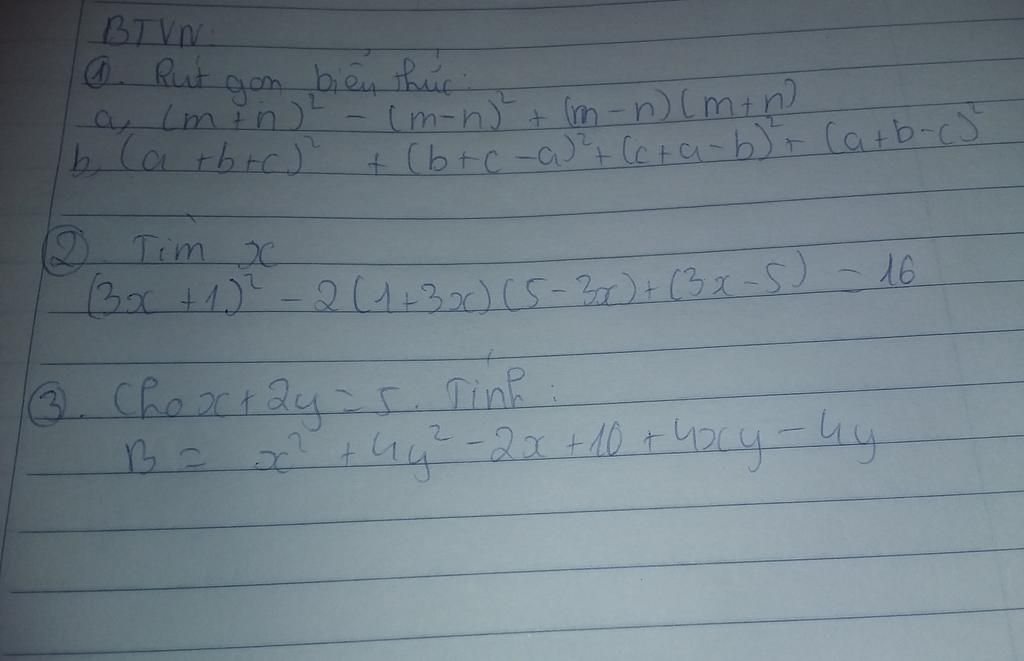 BTVN:
①. Rút gọn biểu thức:
a, (m+n)² - (m-n)² + (m-n)(m+n)
b, (a+b+c)² + (b+c-a)² + (c+a-b)² + (a+b-c)²
② Tìm x
(3x+1)² - 2(1+3x)(5-3x)+(3x-5) = 16
③. Cho x+2y=5. Tính:
B = x² + 4y² - 2x + 10 + 4xy - 4y